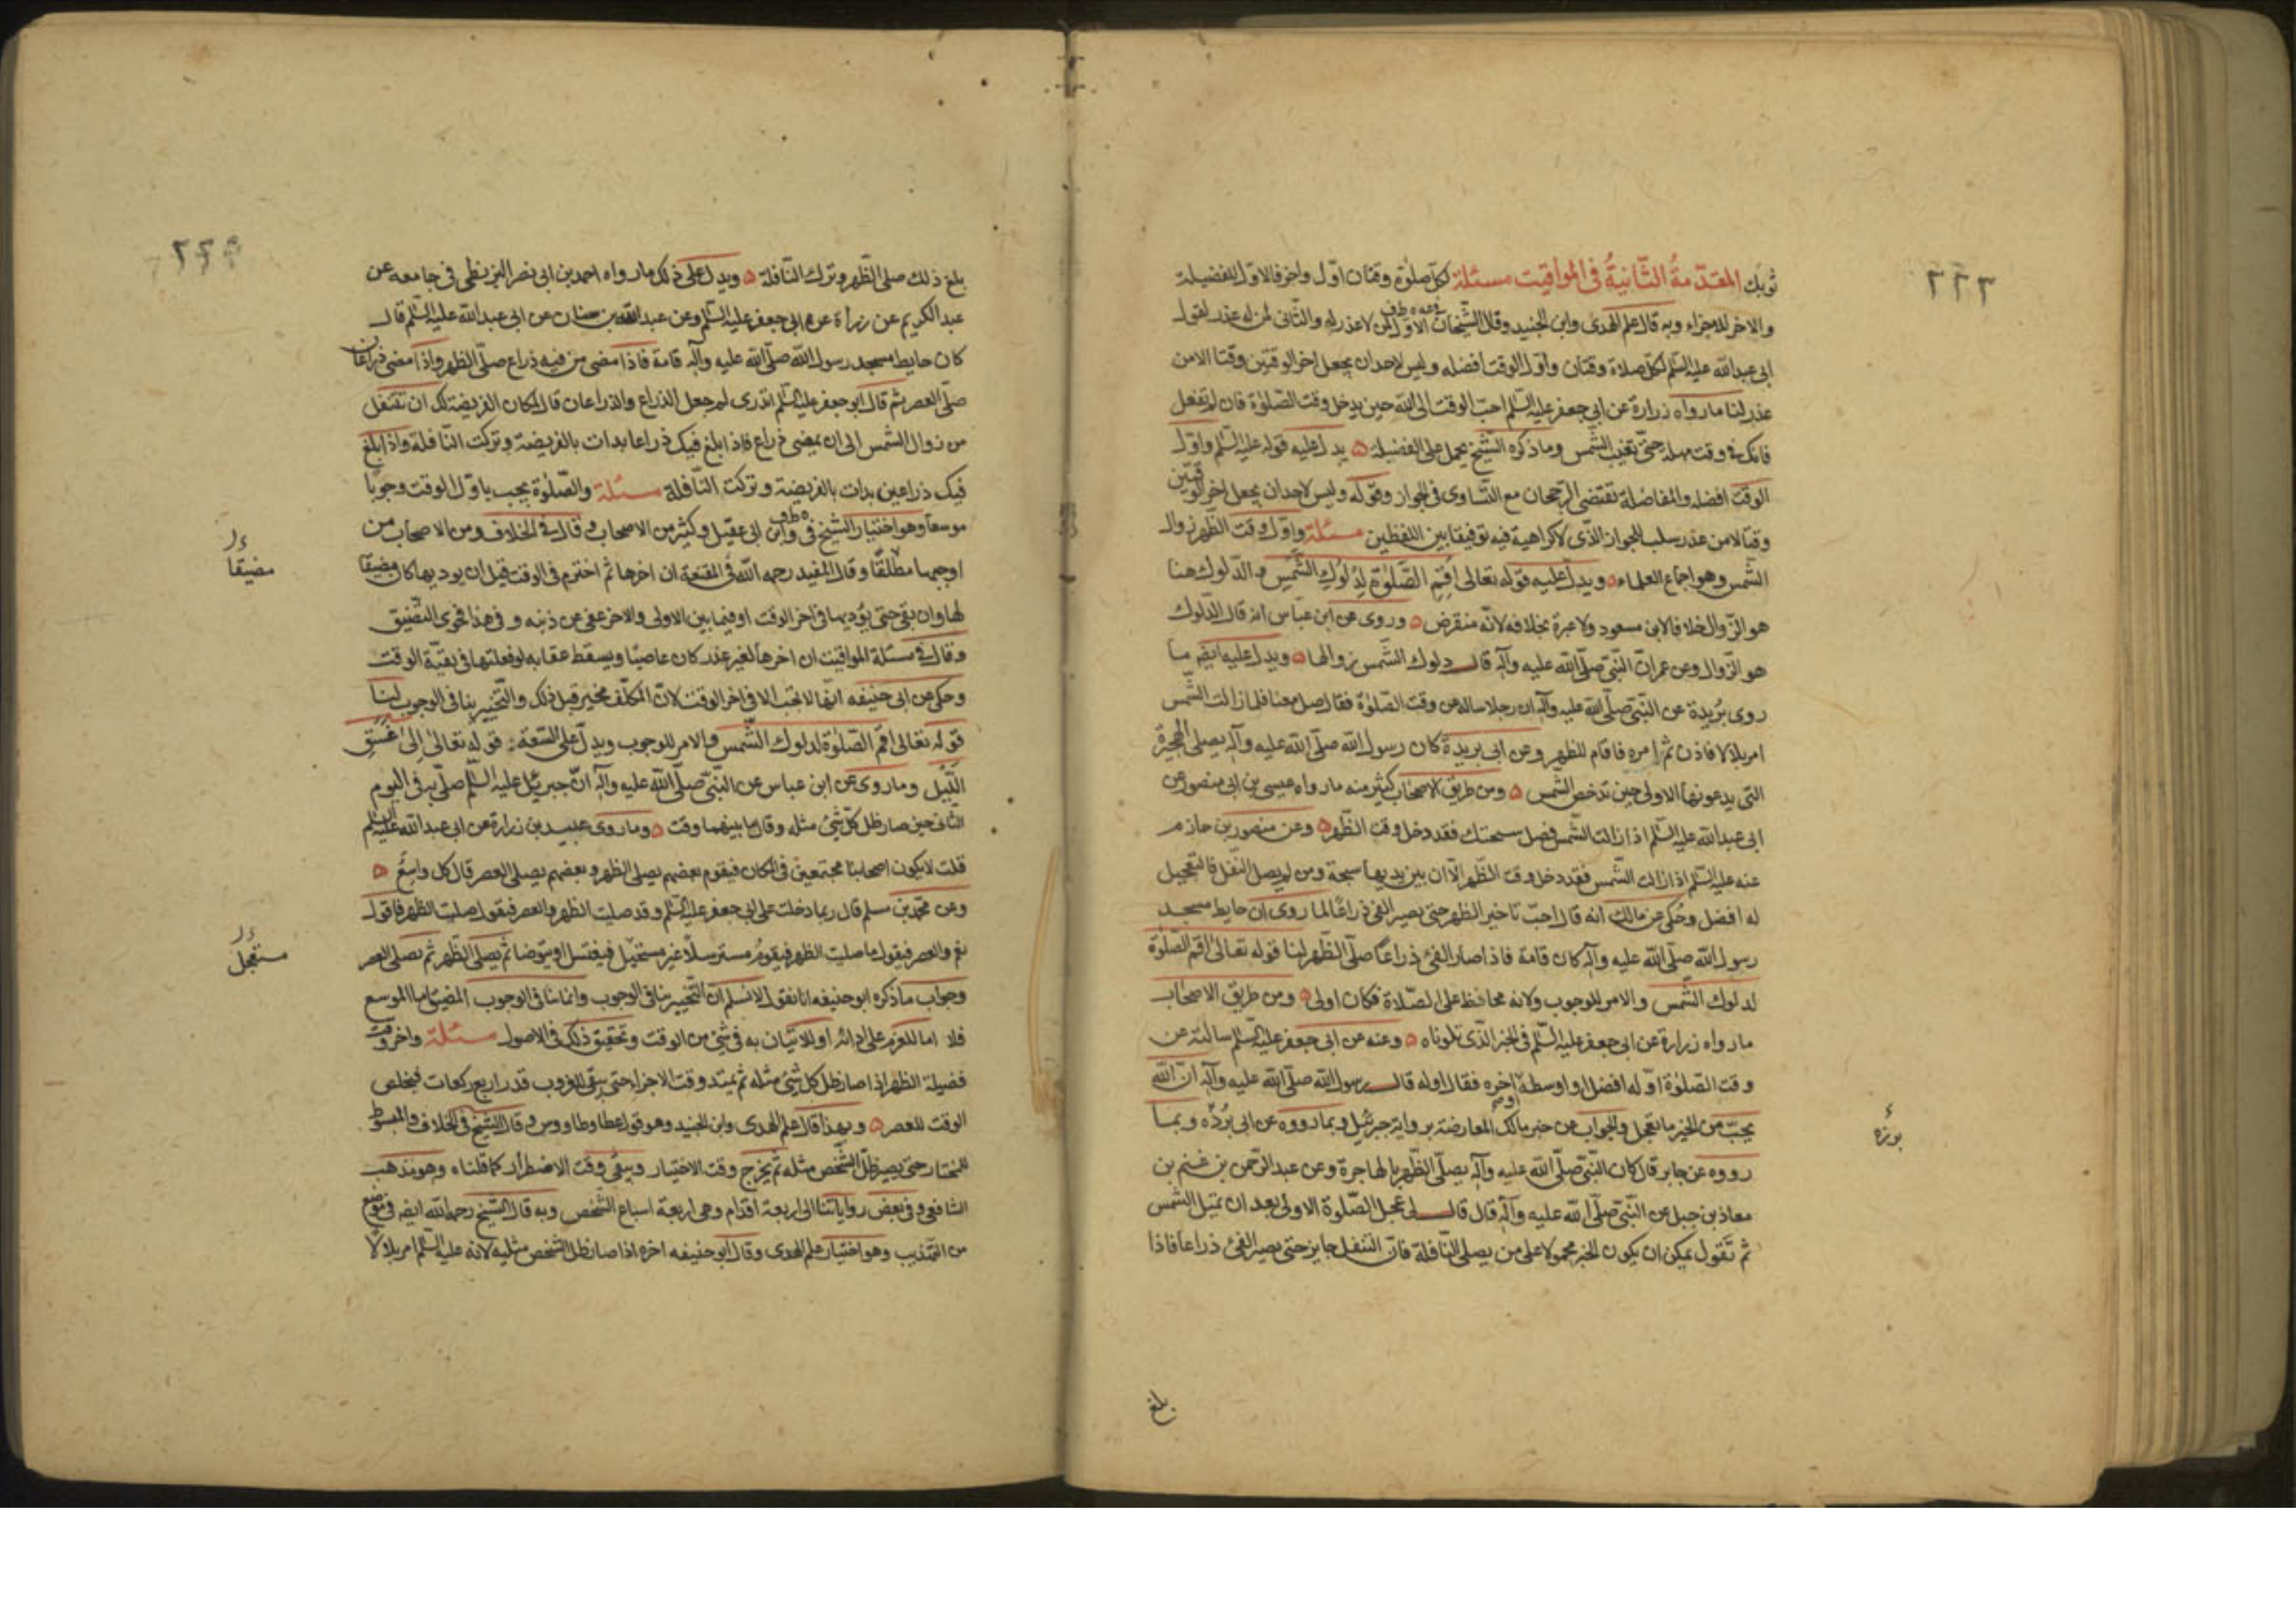 ٢٢٣
ثوبك المقدّمةُ الثّانيةُ فى المواقيت مسئلة لكلّ صلوة وقتان اوّل واخر فالاوّل للفضيلة
والاخر للاجزاء وبه قال علم الهدى وابن الجنيد وقال الشّيخان الاوّل لمن لا عذر له والثّانى لمن له عذر لقول
ابى عبدالله عليه السّلم لكلّ صلاة وقتان واوّل الوقت افضله وليس لاحد ان يجعل اخر الوقتين وقتا الا من
عذر لنا ما رواه زرارة عن ابى جعفر عليه السّلم احبّ الوقت الى الله حين يدخل وقت الصّلوة فان لم تفعل
فانك فى وقت منها حتّى تغيب الشّمس وما ذكره الشّيخ يحمل على الفضيلة ۵ يدل عليه قوله عليه السّلم واوّل
الوقت افضله والمفاضلة تقتضى الرّجحان مع التّساوى فى الجواز وقوله وليس لاحد ان يجعل اخر الوقتين
وقتا الا من عذر سلب للجواز الذّى لا كراهية فيه توفيقا بين اللفظين مسئلة واوّل وقت الظّهر زوال
الشّمس وهو اجماع العلماء ۵ ويدلّ عليه قوله تعالى اَقِمِ الصَّلوةَ لِدُلُوكِ الشَّمسِ والدّلوك هنا
هو الزّوال خلافا لابن مسعود ولا عبرة بخلافه لانّه منقرض ۵ وروى عن ابن عبّاس انه قال الدّلوك
هو الزّوال وعن عمر انّ النّبىّ صلّى الله عليه وآله قال دلوك الشّمس زوالها ۵ ويدل عليه ايضا ما
روى بُريدة عن النّبىّ صلّى الله عليه وآله ان رجلا ساله عن وقت الصّلوة فقال صل معنا فلما زالت الشّمس
امر بلالا فاذن ثم امره فاقام للظهر وعن ابى بريدة كان رسول الله صلّى الله عليه وآله يصلى الهجيرة
التى يدعونها الاولى حين تدحض الشّمس ۵ ومن طريق الاصحاب كثير منه ما رواه عيسى بن ابى منصور عن
ابى عبدالله عليه السّلم اذا زالت الشّمس فصل سبحتك فقد دخل وقت الظّهر ۵ وعن منصور بن حازم
عنه عليه السّلم اذا زالت الشّمس فقد دخل وقت الظّهر الّا ان بين يديها سبحة ومن لم يصل النّفل فالتعجيل
له افضل وحُكى عن مالك انه قال احبّ تاخير الظهر حتى يصير الفئ ذراعًا لما روى ان حايط مسجد
رسول الله صلّى الله عليه وآله كان قامة فاذا صار الفئ ذراعًا صلّى الظّهر لنا قوله تعالى اقم الصّلوة
لدلوك الشّمس والامر للوجوب ولانه محافظ على الصّلاة فكان اولى ۵ ومن طريق الاصحاب
ما رواه زرارة عن ابى جعفر عليه السّلم فى الخبر الذّى تلوناه ۵ وعنه عن ابى جعفر عليه السّلم سالته عن
وقت الصّلوة اوّله افضل او اوسطه او اخره فقال اوله قال رسول الله صلّى الله عليه وآله انّ الله
يحبّ من الخير ما يعجل والجواب عن خبر مالك المعارضة برواية جبرئيل وبما رووه عن ابى بُردّه وبما
رووه عن جابر قال كان النّبىّ صلّى الله عليه وآله يصلّى الظّهر بالهاجرة وعن عبد الرّحمن بن غنم بن
معاذ بن جبل عن النّبىّ صلّى الله عليه وآله قال قال لى عجل الصّلوة الاولى بعد ان تميل الشّمس
ثم نقول يمكن ان يكون الخبر محمولا على من يصلى النّافلة فانّ التنفل جايز حتى يصير الفئ ذراعا فاذا
بوزه
بلغ
٢٢٤
بلغ ذلك صلى الظّهر وترك النّافلة ۵ ويدل على ذلك ما رواه احمد بن ابى نصر البزنطى فى جامعه عن
عبد الكريم عن زرارة عن ابى جعفر عليه السّلم وعن عبدالله بن سنان عن ابى عبدالله عليه السّلم قال
كان حايط مسجد رسول الله صلّى الله عليه وآله قامة فاذا مضى من فيه ذراع صلّى الظهر واذا مضى ذراعان
صلّى العصر ثم قال ابو جعفر عليه السّلم اتدرى لم جعل الذراع والذراعان قال لمكان الفريضة لك ان تتنفل
من زوال الشّمس الى ان يمضى ذراع فاذا بلغ فيك ذراعا بدات بالفريضة وتركت النّافلة واذا بلغ
فيك ذراعين بدات بالفريضة وتركت النّافلة مسئلة والصّلوة يجب باوّل الوقت وجوبا
موسعا وهو اختيار الشّيخ فى ف وط وابن ابى عقيل وكثير من الاصحاب وقال فى الخلاف ومن الاصحاب من
اوجبها مطلقًا وقال المفيد رحمه الله فى المقنعة ان اخرها ثم اخترم فى الوقت قبل ان يوديها كان مضيقا
لها وان بقى حتى يؤديها فى اخر الوقت او فيما بين الاولى والاخر عفى عن ذنبه وفى هذا فحوى التضيق
وقال فى مسئلة المواقيت ان اخرها لغير عذر كان عاصيا ويسقط عقابه لو فعلتها فى بقيّة الوقت
وحكى عن ابى حنيفه انّها لا تجب الا فى اخر الوقت لانّ المكلّف مخير قبل ذلك والتّخيير ينافى الوجوب لنا
قوله تعالى اقم الصّلوة لدلوك الشّمس والامر للوجوب ويدلّ على السّعة قوله تعالى اِلىٰ غَسَقِ
اللَّيْلِ وما روى عن ابن عباس عن النّبىّ صلّى الله عليه وآله انّ جبرئيل عليه السّلم صلّى به فى اليوم
الثّانى حين صار ظل كلّ شئ مثله وقال ما بينهما وقت ۵ وما روى عبيد بن زرارة عن ابى عبدالله عليه السّلم
قلت لا يكون اصحابنا مجتمعين فى المكان فيقوم بعضهم يصلى الظهر وبعضهم يصلى العصر قال كل واسِعٌ ۵
وعن محمّد بن مسلم قال ربما دخلت على ابى جعفر عليه السّلم وقد صليت الظهر والعصر فيقول صليت الظهر فاقول
نعم والعصر فيقول ما صليت الظهر فيقوم مسترسلا غير مستعجل فيغتسل او يتوضا ثم يصلى الظّهر ثم يصلى العصر
وجواب ما ذكره ابو حنيفه انا نقول لا نسلم ان التّخيير ينافى الوجوب وانما ينافى الوجوب المضيق اما الموسع
فلا اما للعزم على ادائه او للاتيان به فى شئ من الوقت وتحقيق ذلك فى الاصول مسئلة واخر وقت
فضيلة الظهر اذا صار ظل كل شئ مثله ثم يمتد وقت الاجزاء حتى يبقى للغروب قدر اربع ركعات فيخلص
الوقت للعصر ۵ وبهذا قال علم الهدى وابن الجنيد وهو قول عطا وطاووس وقال الشّيخ فى الخلاف والمبسوط
للمختار حتى يصير ظلّ الشّخص مثله ثم يخرج وقت الاختيار ويبقى وقت الاضطرار كما قلناه وهو مذهب
الشافعى وفى بعض رواياتنا الى اربعة اقدام وهى اربعة اسباع الشّخص وبه قال الشّيخ رحمه الله ايضا فى موضع
من التهذيب وهو اختيار علم الهدى وقال ابو حنيفه اخره اذا صار ظل الشّخص مثليه لانه عليه السّلم امر بلالًا
مضيقا
مستعجل